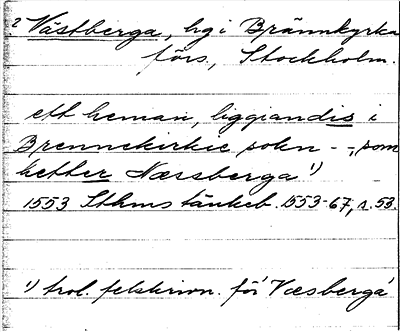 2 Västberga, hg i Brännkyrka
förs., Stockholm.
ett heman, liggiandis i
Brennekirkie sokn - -, som
hetter Næssberga ¹)
1553 Sthms tänkeb. 1553-67, s. 53.
¹) trol. felskrivn. för Væsberga